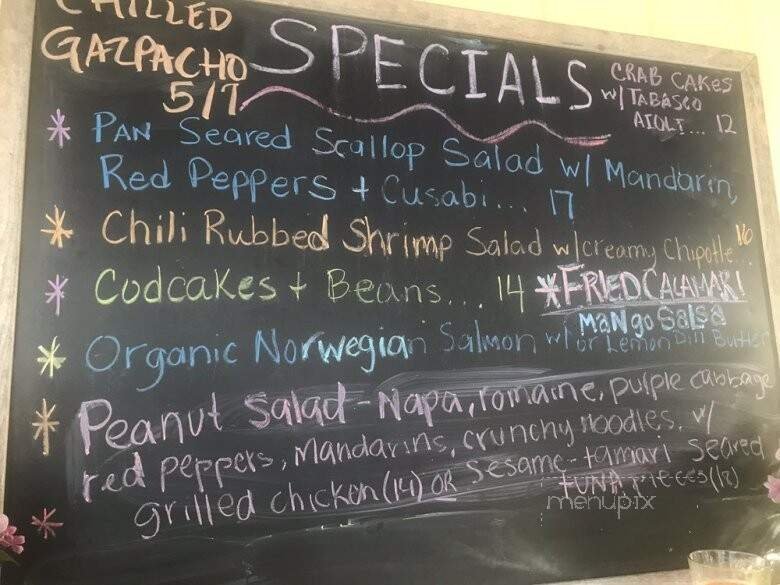 CHILLED
GAZPACHO
5/7
SPECIALS
CRAB CAKES
w/TABASCO
AIOLI... 12
* PAN Seared Scallop Salad w/ Mandarin,
Red Peppers + Cusabi... 17
* Chili Rubbed Shrimp Salad w/creamy Chipotle.. 16
* Codcakes + Beans... 14 *FRIED CALAMARI
* Organic Norwegian Salmon w/ Mango Salsa
or Lemon Dill Butter
* Peanut Salad - Napa, romaine, purple cabbage
red peppers, Mandarins, crunchy noodles, w/
grilled chicken (14) OR Sesame-tamari Seared
* TUNA Pieces
menupix